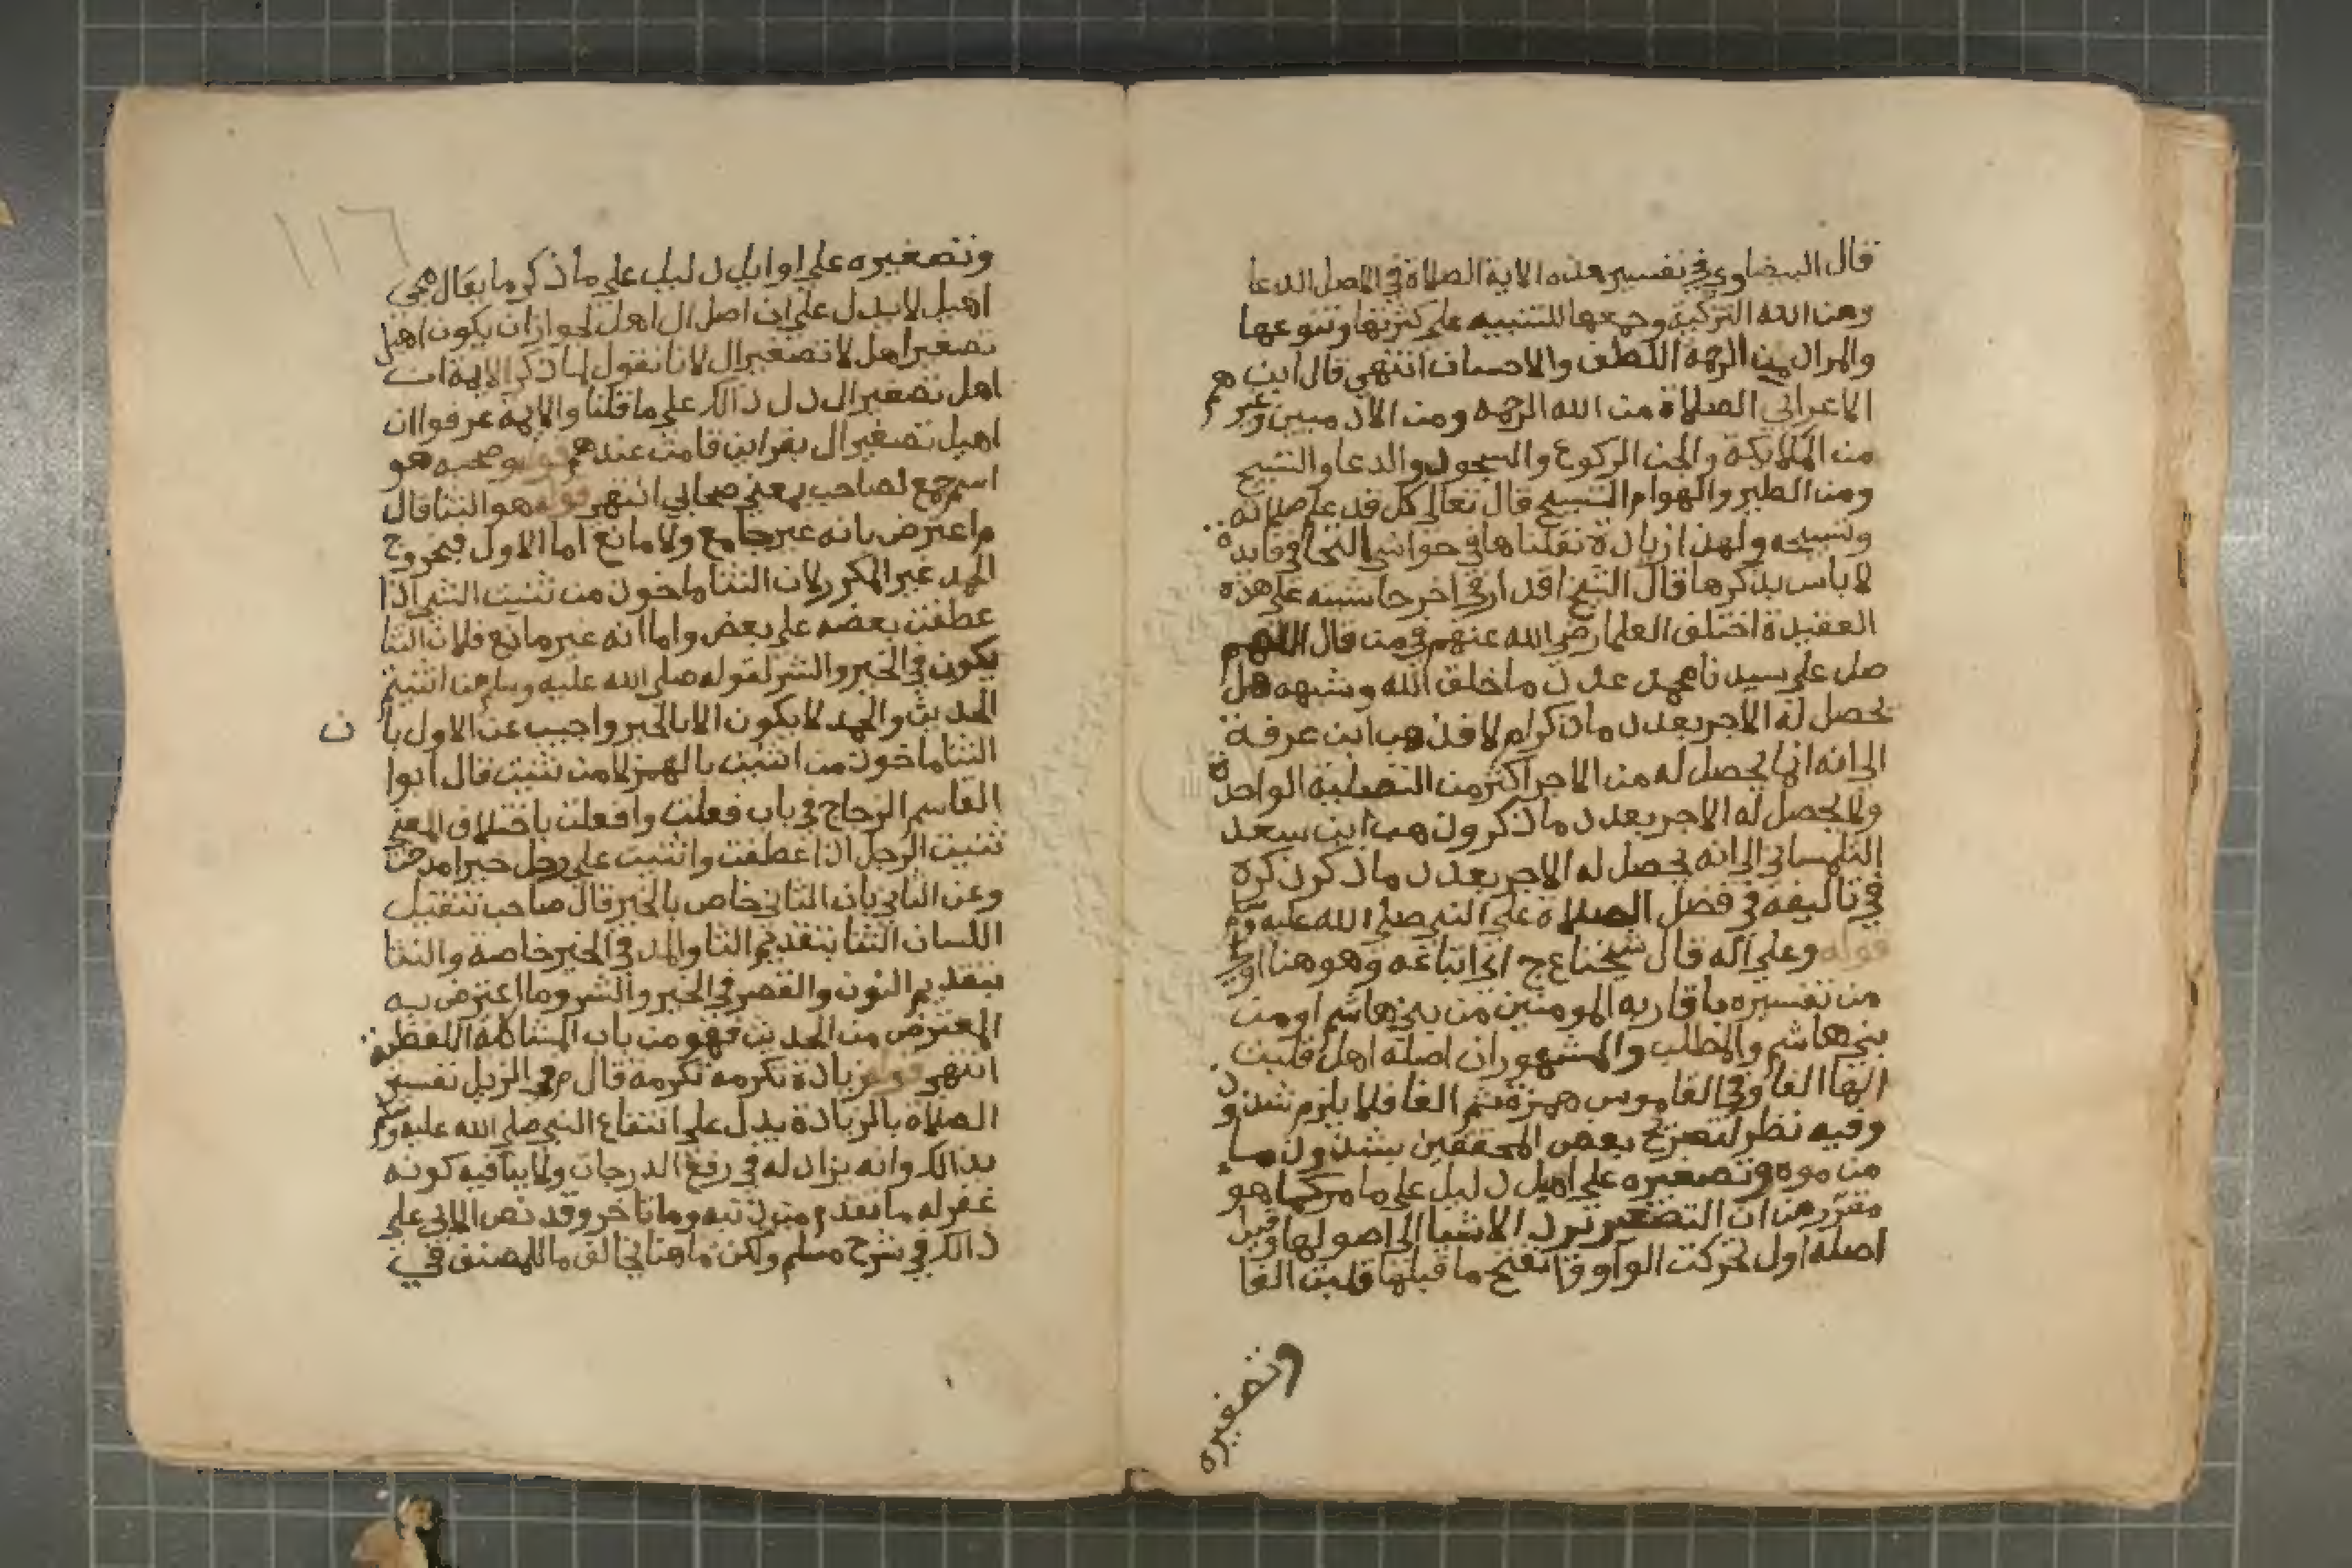 قال البيضاوي في تفسير هذه الاية الصلاة في الاصل الدعا
ومن الله التزكية وجمعها للتنبيه على كثرتها وتنوعها
والمراد من الرحمة اللطف والاحسان انتهى قال ابن
الاعرابي الصلاة من الله الرحمة ومن الادميين وغيرهم
من الملايكة والجن الركوع والسجود والدعا والتسبيح
ومن الطير والهوام التسبيح قال تعالى كل قد علم صلاته
وتسبيحه ولهذا زيادة نقلناها في حواشي فايدة
لا باس بذكرها قال الشيخ اقدار في اخر حاشيته على هذه
العقيدة اختلف العلما رضي الله عنهم في من قال اللهم
صل على سيدنا محمد عدد ما خلق الله وشبهه هل
يحصل له الاجر بعدد ما ذكر ام لا فذهب ابن عرفة
الى انه انما يحصل له من الاجر اكثر من التصلية الواحدة
ولا يحصل له الاجر بعدد ما ذكر وذهب ابن سعد
التلمساني الى انه يحصل له الاجر بعدد ما ذكر ذكره
في تاليفه في فضل الصلاة على النبي صلى الله عليه وسلم
قوله وعلى آله قال شيخنا ع ج اي اتباعه وهو هنا اولى
من تفسيره باقاربه المومنين من بني هاشم او من
بني هاشم والمطلب والمشهور ان اصله اهل قلبت
الها الفا وفي القاموس همزة ثم الفا فلا يلزم شذوذ
وفيه نظر لتصريح بعض المحققين بشذوذ ماء
من موه وتصغيره على اهيل دليل على ما مر كما هو
مقرر من ان التصغير يرد الاشيا الى اصولها وقيل
اصله اول تحركت الواو وانفتح ما قبلها قلبت الفا
وتصغيره
١١٦
وتصغيره على اوايل دليل على ما ذكر ما يقال مجي
اهيل لا يدل على ان اصل ال اهل لجواز ان يكون اهيل
تصغير اهل لا تصغير ال لانا نقول لما ذكر الايمة ان
اهل تصغير ال دل ذالك على ما قلنا والايمة عرفوا ان
اهيل تصغير ال بقراين قامت عندهم قوله وصحبه هو
اسم جمع لصاحب بمعنى صحابي انتهى قوله هو الثنا قال
م اعترض بانه غير جامع ولا مانع اما الاول فبخروج
الحمد غير المكرر لان الثنا ماخوذ من ثنيت الشي اذا
عطفت بعضه على بعض واما انه غير مانع فلان الثنا
يكون في الخير والشر لقوله صلى الله عليه وسلم من اثنيتم
الحديث والحمد لا يكون الا بالخير واجيب عن الاول بان
الثنا ماخوذ من اثنيت بالهمز لا من ثنيت قال ابوا
القاسم الزجاج في باب فعلت وافعلت باختلاف المعنى
ثنيت الرجل اذا عطفت واثنيت على رجل خيرا مدحت
وعن الثاني بان الثاني خاص بالخير قال صاحب تثقيل
اللسان الثنا بتقديم الثا والمد في الخير خاصة والنثا
بتقديم النون والقصر في الخير والشر وما اعترض به
المعترض من الحديث فهو من باب المشاكلة اللفظية
انتهى قوله زيادة تكرمه تكرمه قال م في الزيل تفسير
الصلاة بالزيادة يدل على انتفاع النبي صلى الله عليه وسلم
بذالك وانه يزاد له في رفع الدرجات ولا ينافيه كونه
غفر له ما تقدم من ذنبه وما تاخر وقد نص الابي على
ذالك في شرح مسلم ولكن ما هنا يخالف ما للمصنف في